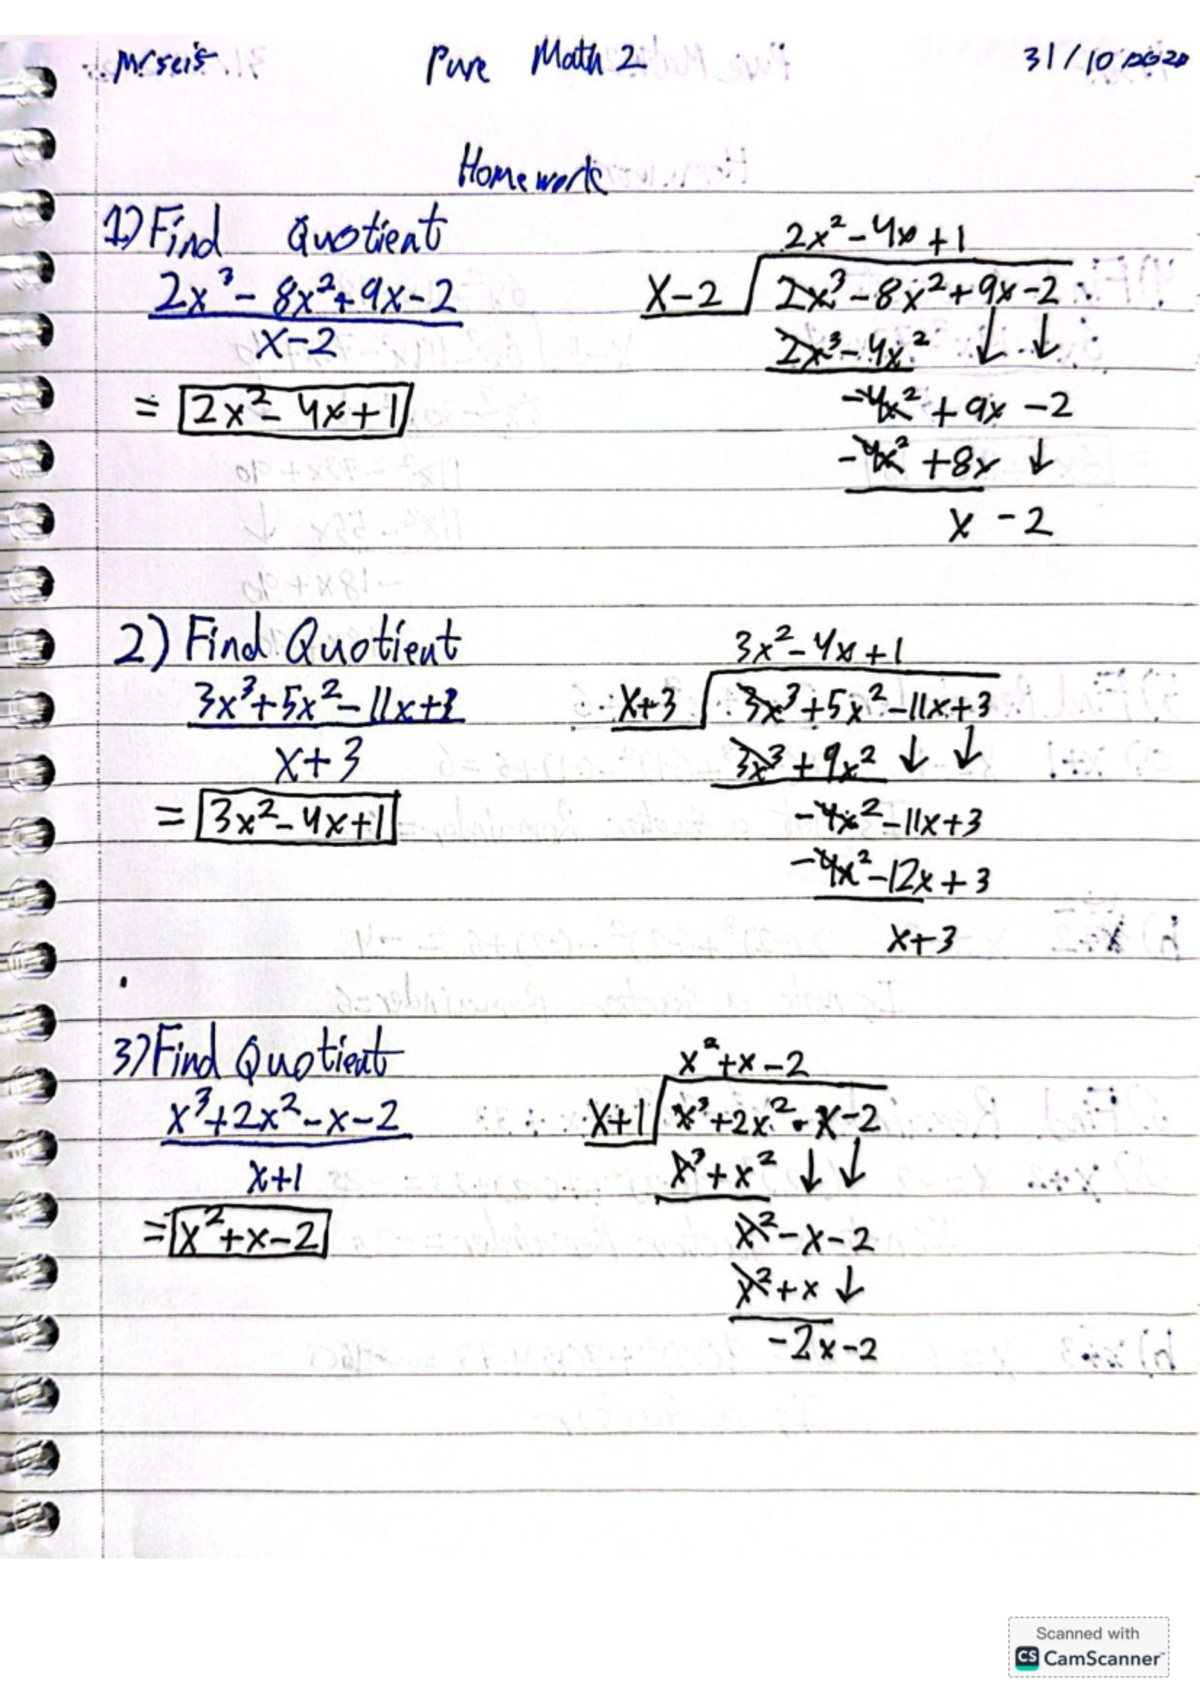 Pure Math 2 31/10
Homework
1) Find Quotient
2x³ - 8x² + 9x - 2
x - 2
= 2x² - 4x + 1
2x² - 4x + 1
x - 2 2x³ - 8x² + 9x - 2
2x³ - 4x² ↓ ↓
-4x² + 9x - 2
-4x² + 8x ↓
x - 2
2) Find Quotient
3x³ + 5x² - 11x + 3
x + 3
= 3x² - 4x + 1
3x² - 4x + 1
x + 3 3x³ + 5x² - 11x + 3
3x³ + 9x² ↓ ↓
-4x² - 11x + 3
-4x² - 12x + 3
x + 3
3) Find Quotient
x³ + 2x² - x - 2
x + 1
= x² + x - 2
x² + x - 2
x + 1 x³ + 2x² - x - 2
x³ + x² ↓ ↓
x² - x - 2
x² + x ↓
-2x - 2
Scanned with
CS CamScanner